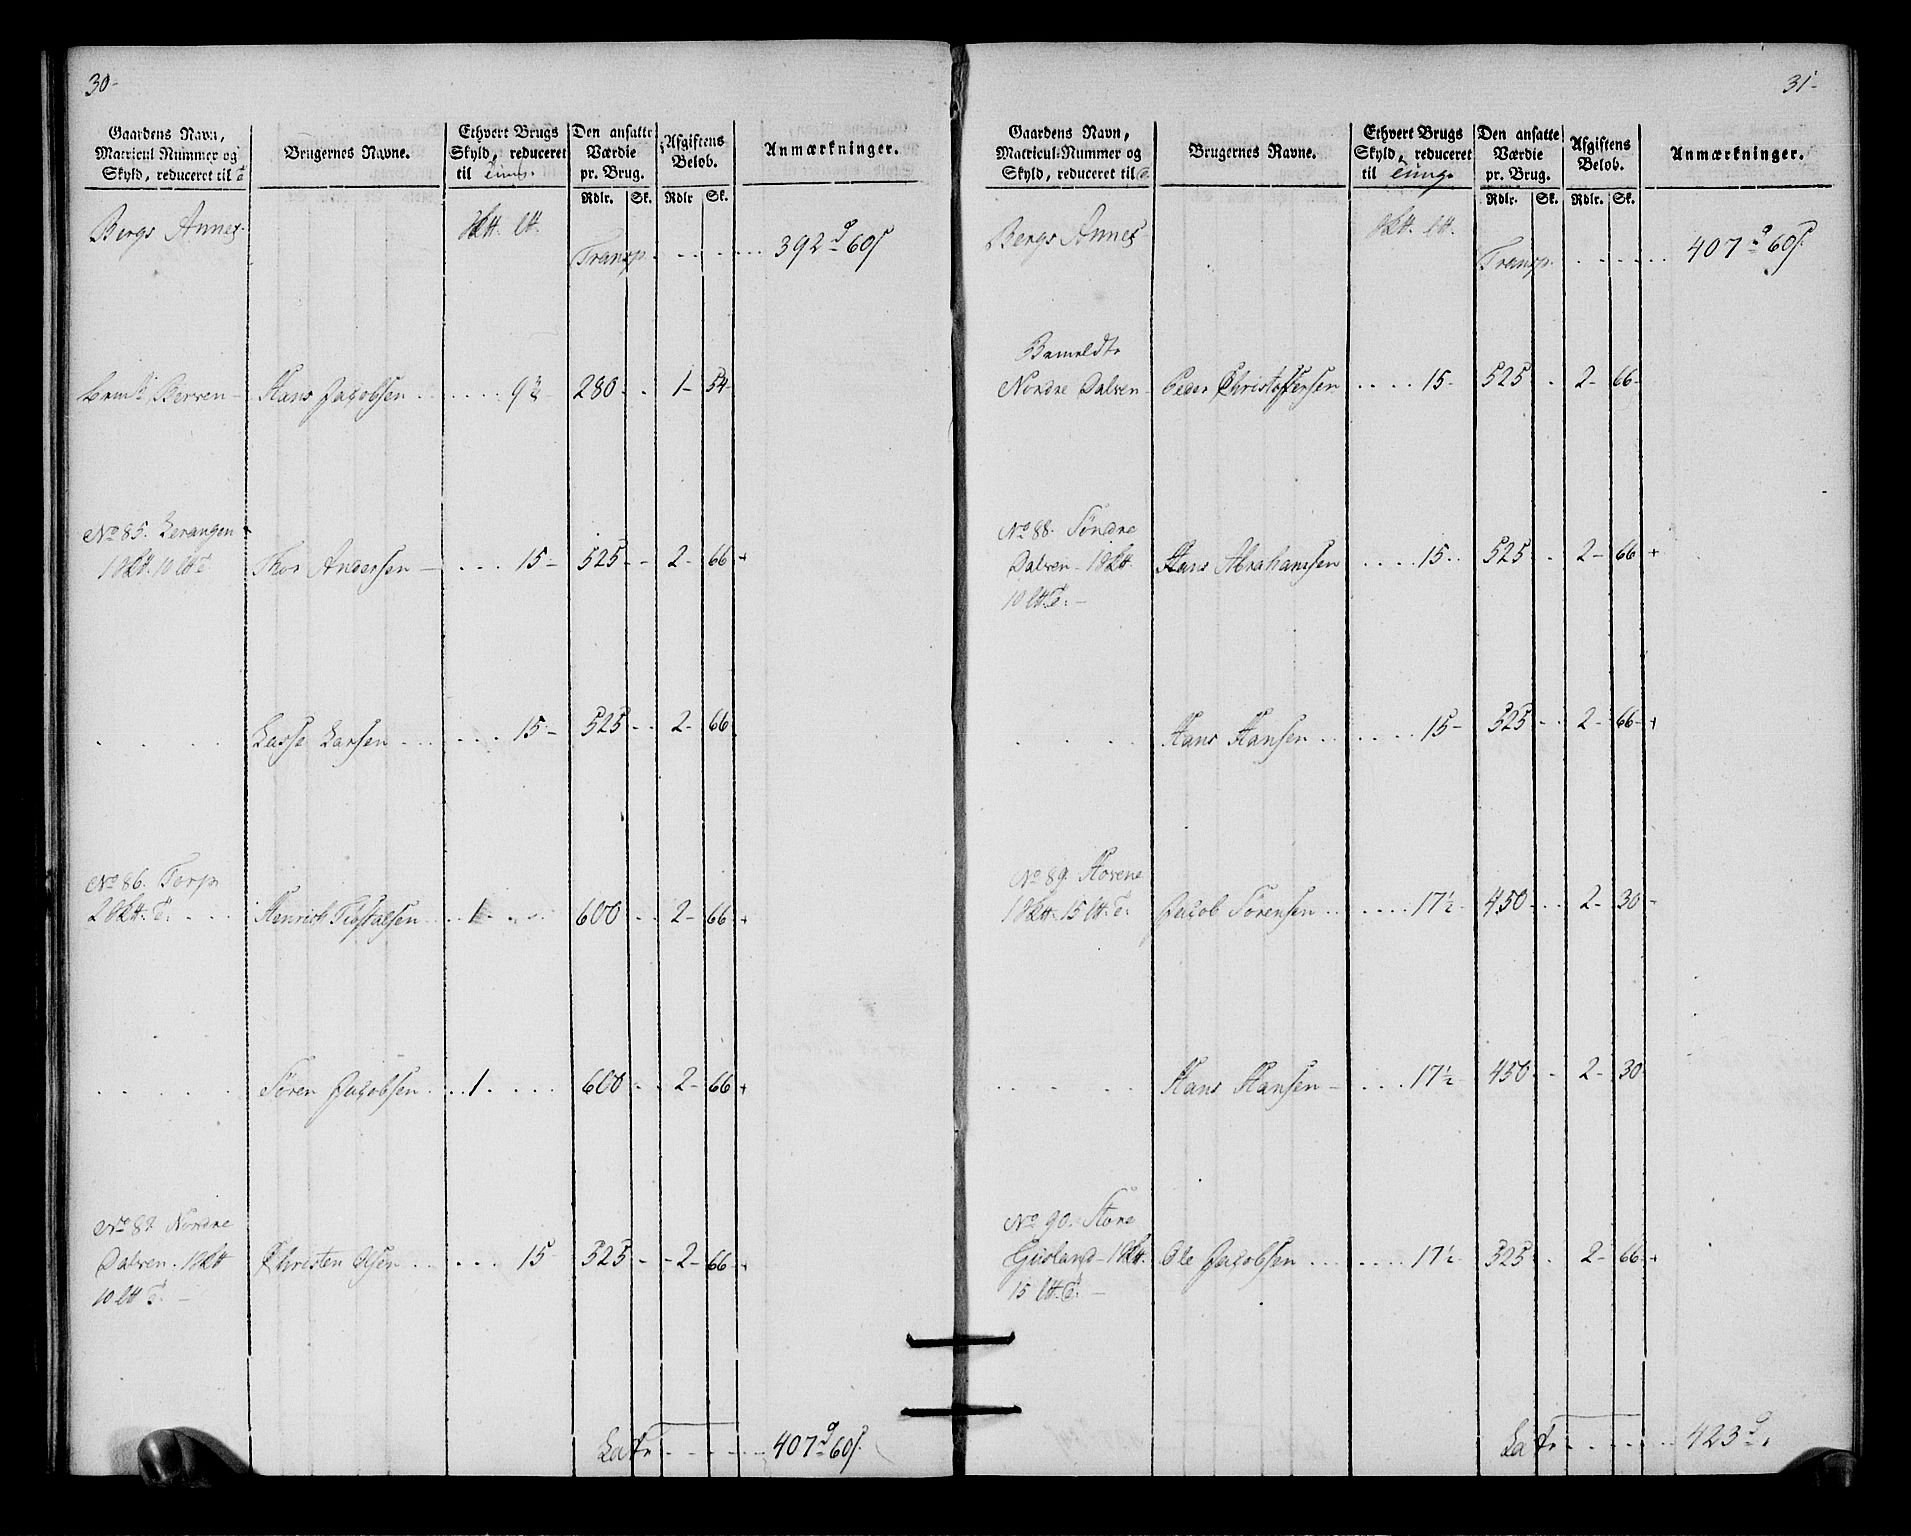 30-
Gaardens Navn,
Matricul Nummer og
Skyld, reduceret til
Brugernes Navne.
Ethvert Brugs
Skyld, reduceret
til
Den ansatte
Værdie
pr. Brug.
Afgiftens
Beløb.
Anmærkninger.
Rdlr. Sk. Rdlr Sk.
Bergs Annex
Transp. 392 60
Hans Jacobsen 280 1- 54-
No 85. Lerangen Thor Andersen 15- 525 2- 66
Lasse Larsen 15- 525 2- 66
No 86. Torp
Henrich 1 600 2- 66
Søren Jacobsen 1 600 2- 66
No 87 Nordre
Dalven Christen Olsen 15 525 2- 66
Latr 407 60
31-
Gaardens Navn,
Matricul-Nummer og
Skyld, reduceret til
Brugernes Navne.
Ethvert Brugs
Skyld, reduceret
til
Den ansatte
Værdie
pr. Brug.
Afgiftens
Beløb.
Anmærkninger.
Rdlr. Sk. Rdlr. Sk.
Bergs Annex
Transp. 407 60
Bemeldte
Nordre Dalven Peder Christophersen 15- 525 2- 66-
No 88. Søndre
Dalven Hans Abrahamsen 15 525 2- 66
Hans Hansen 15- 525 2- 66
No 89. Hovene
Jacob Sørensen 17½ 450 2- 30
Hans Hansen 17½ 450 2- 30
No 90. Store
Gusland Ole Jacobsen 17½ 525 2- 66
Latr 423